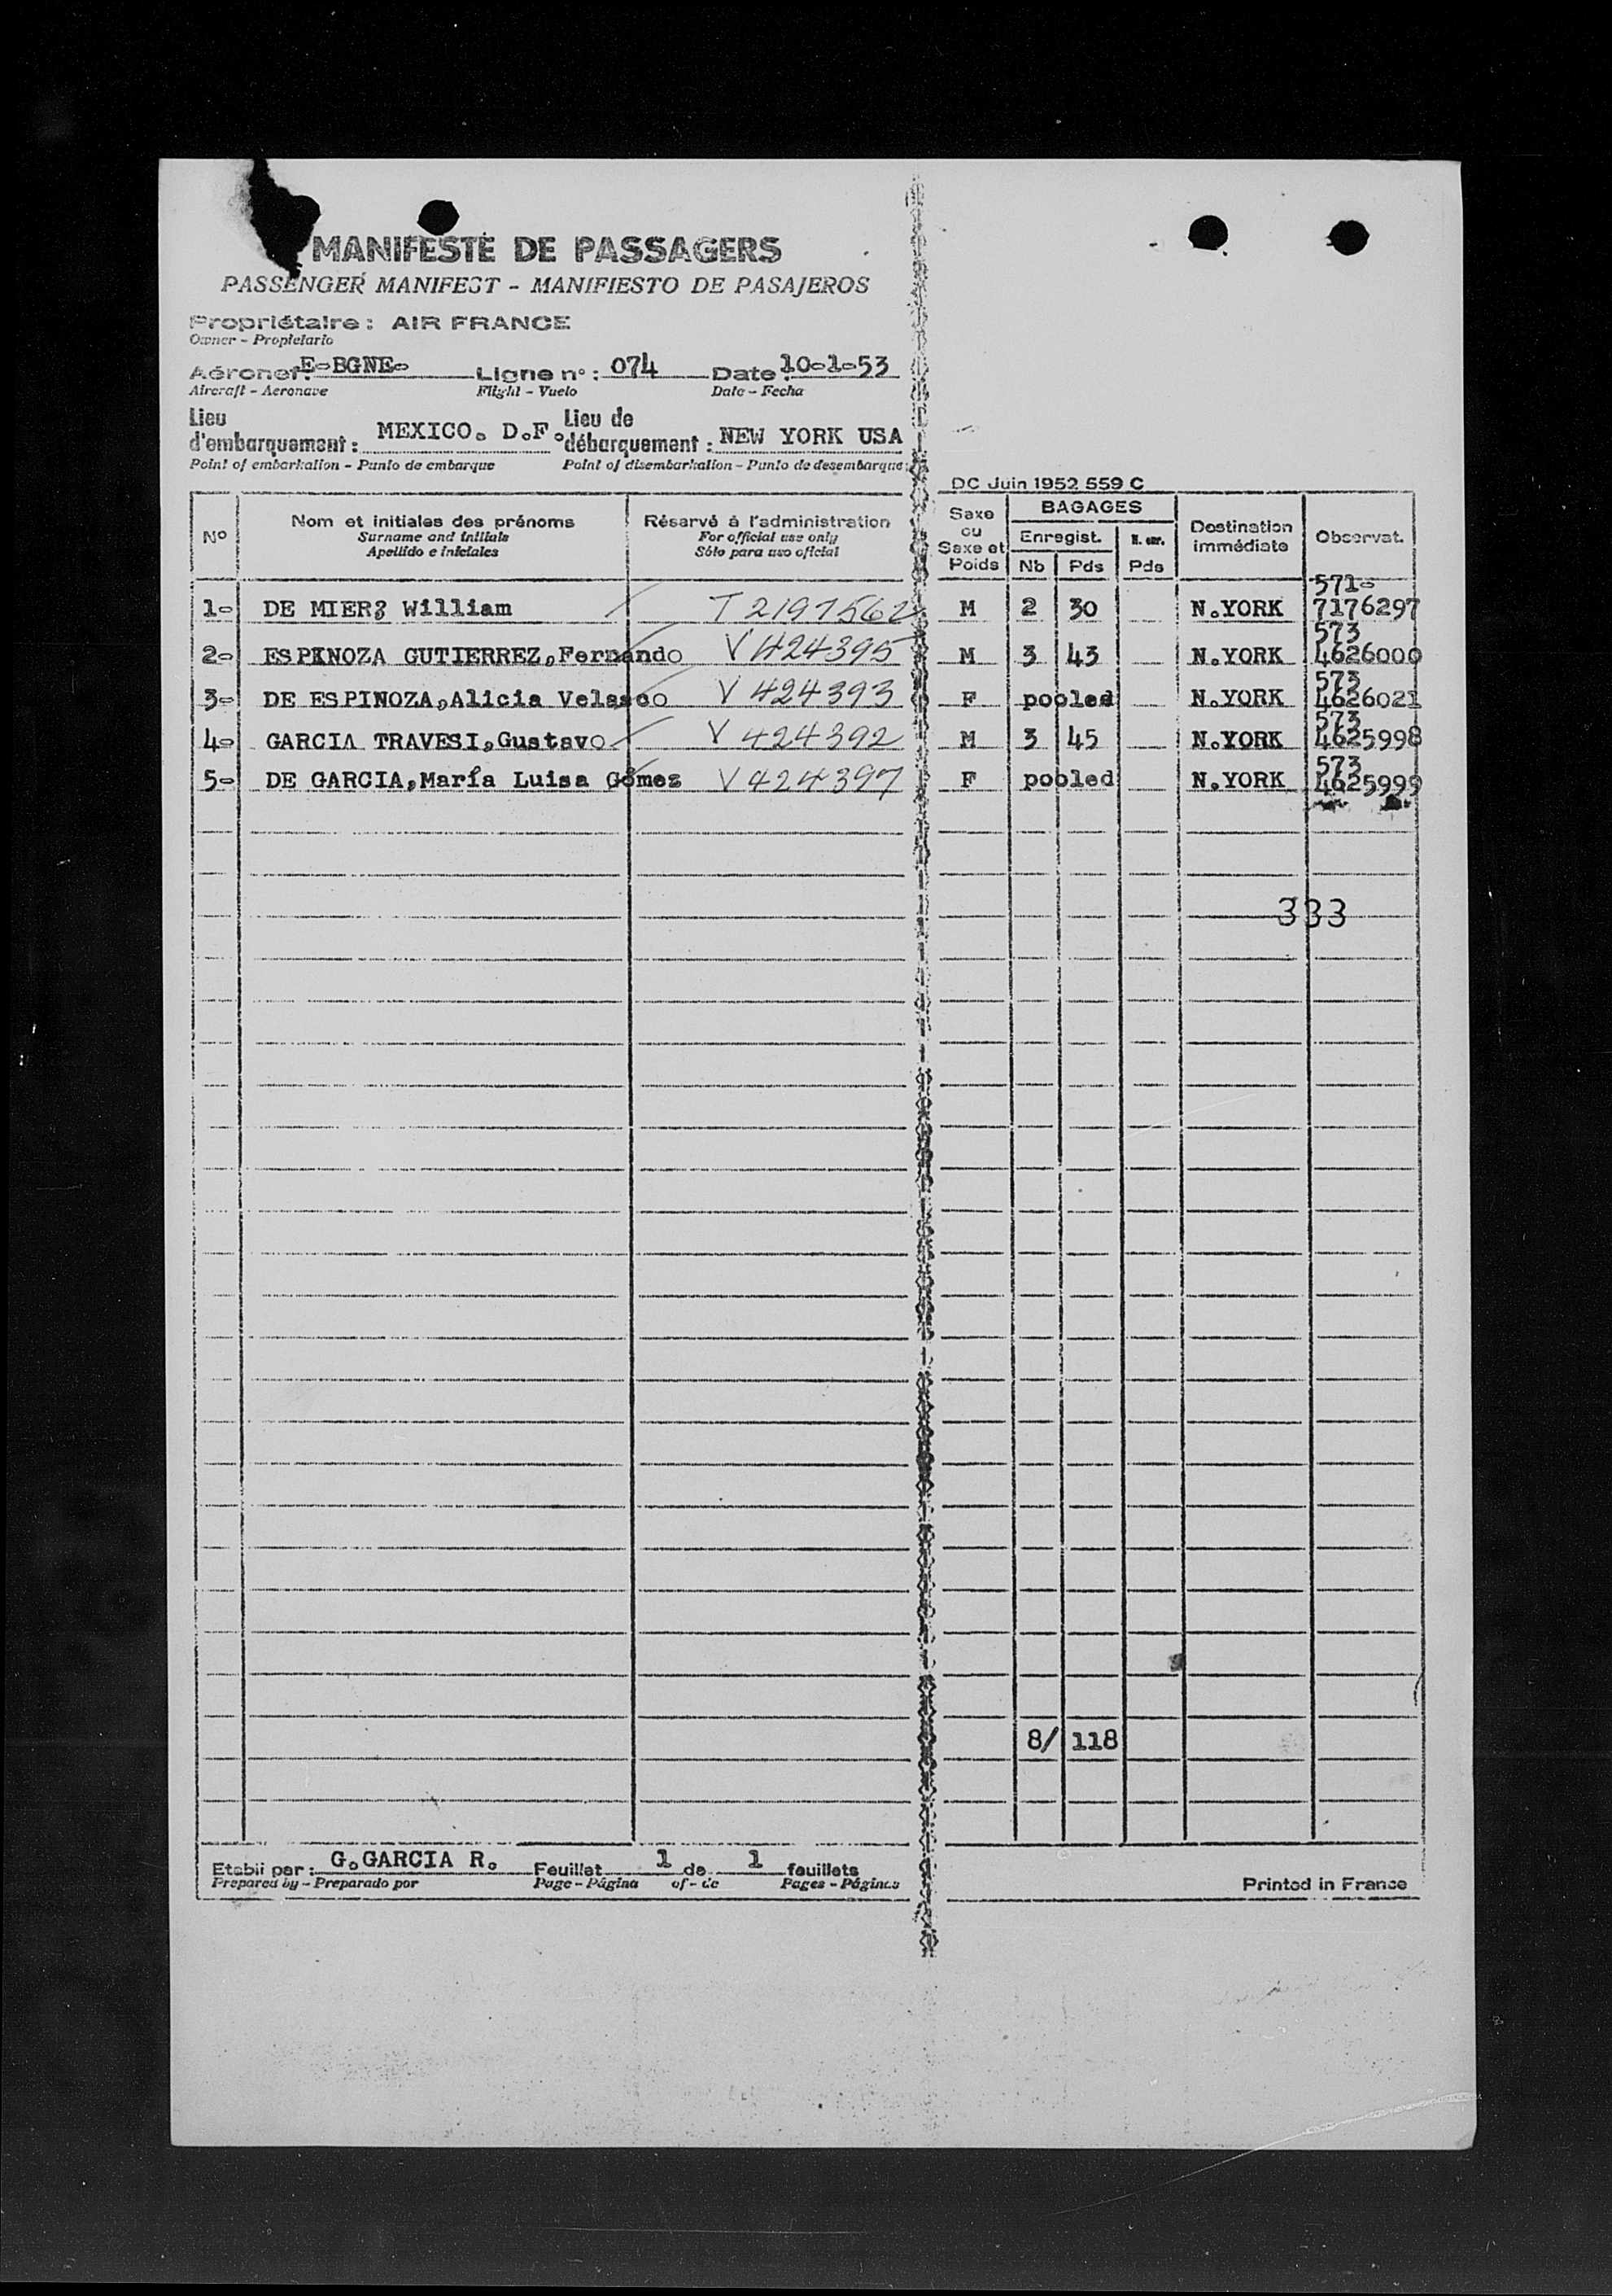 MANIFESTE DE PASSAGERS
PASSENGER MANIFEST - MANIFIESTO DE PASAJEROS
Propriétaire : AIR FRANCE
Owner - Propietario
Aéronef: F-BGNE- Ligne n° : 074 Date : 10-1-53
Aircraft - Aeronave Flight - Vuelo Date - Fecha
Lieu d'embarquement : MEXICO. D.F. Lieu de débarquement : NEW YORK USA
Point of embarkation - Punto de embarque Point of disembarkation - Punto de desembarque
DC Juin 1952 559 C
N° Nom et initiales des prénoms Réservé à l'administration Sexe ou Sexe et Poids BAGAGES Destination immédiate Observat.
Surname and initials For official use only Enregist. N. enr.
Apellido e iniciales Sólo para uso oficial Nb Pds Pds
571-
1- DE MIER, William T 2197562 M 2 30 N.YORK 7176297
573
2- ESPINOZA GUTIERREZ,Fernando V 424395 M 3 43 N.YORK 4626000
573
3- DE ESPINOZA,Alicia Velasco V 424393 F pooled N.YORK 4626021
573
4- GARCIA TRAVESI,Gustavo V 424392 M 3 45 N.YORK 4625998
573
5- DE GARCIA,María Luisa Gómez V 424397 F pooled N.YORK 4625999
333
8/ 118
Etabli par : G.GARCIA R. Feuillet 1 de 1 feuillets
Prepared by - Preparado por Page - Página of - de Pages - Páginas
Printed in France